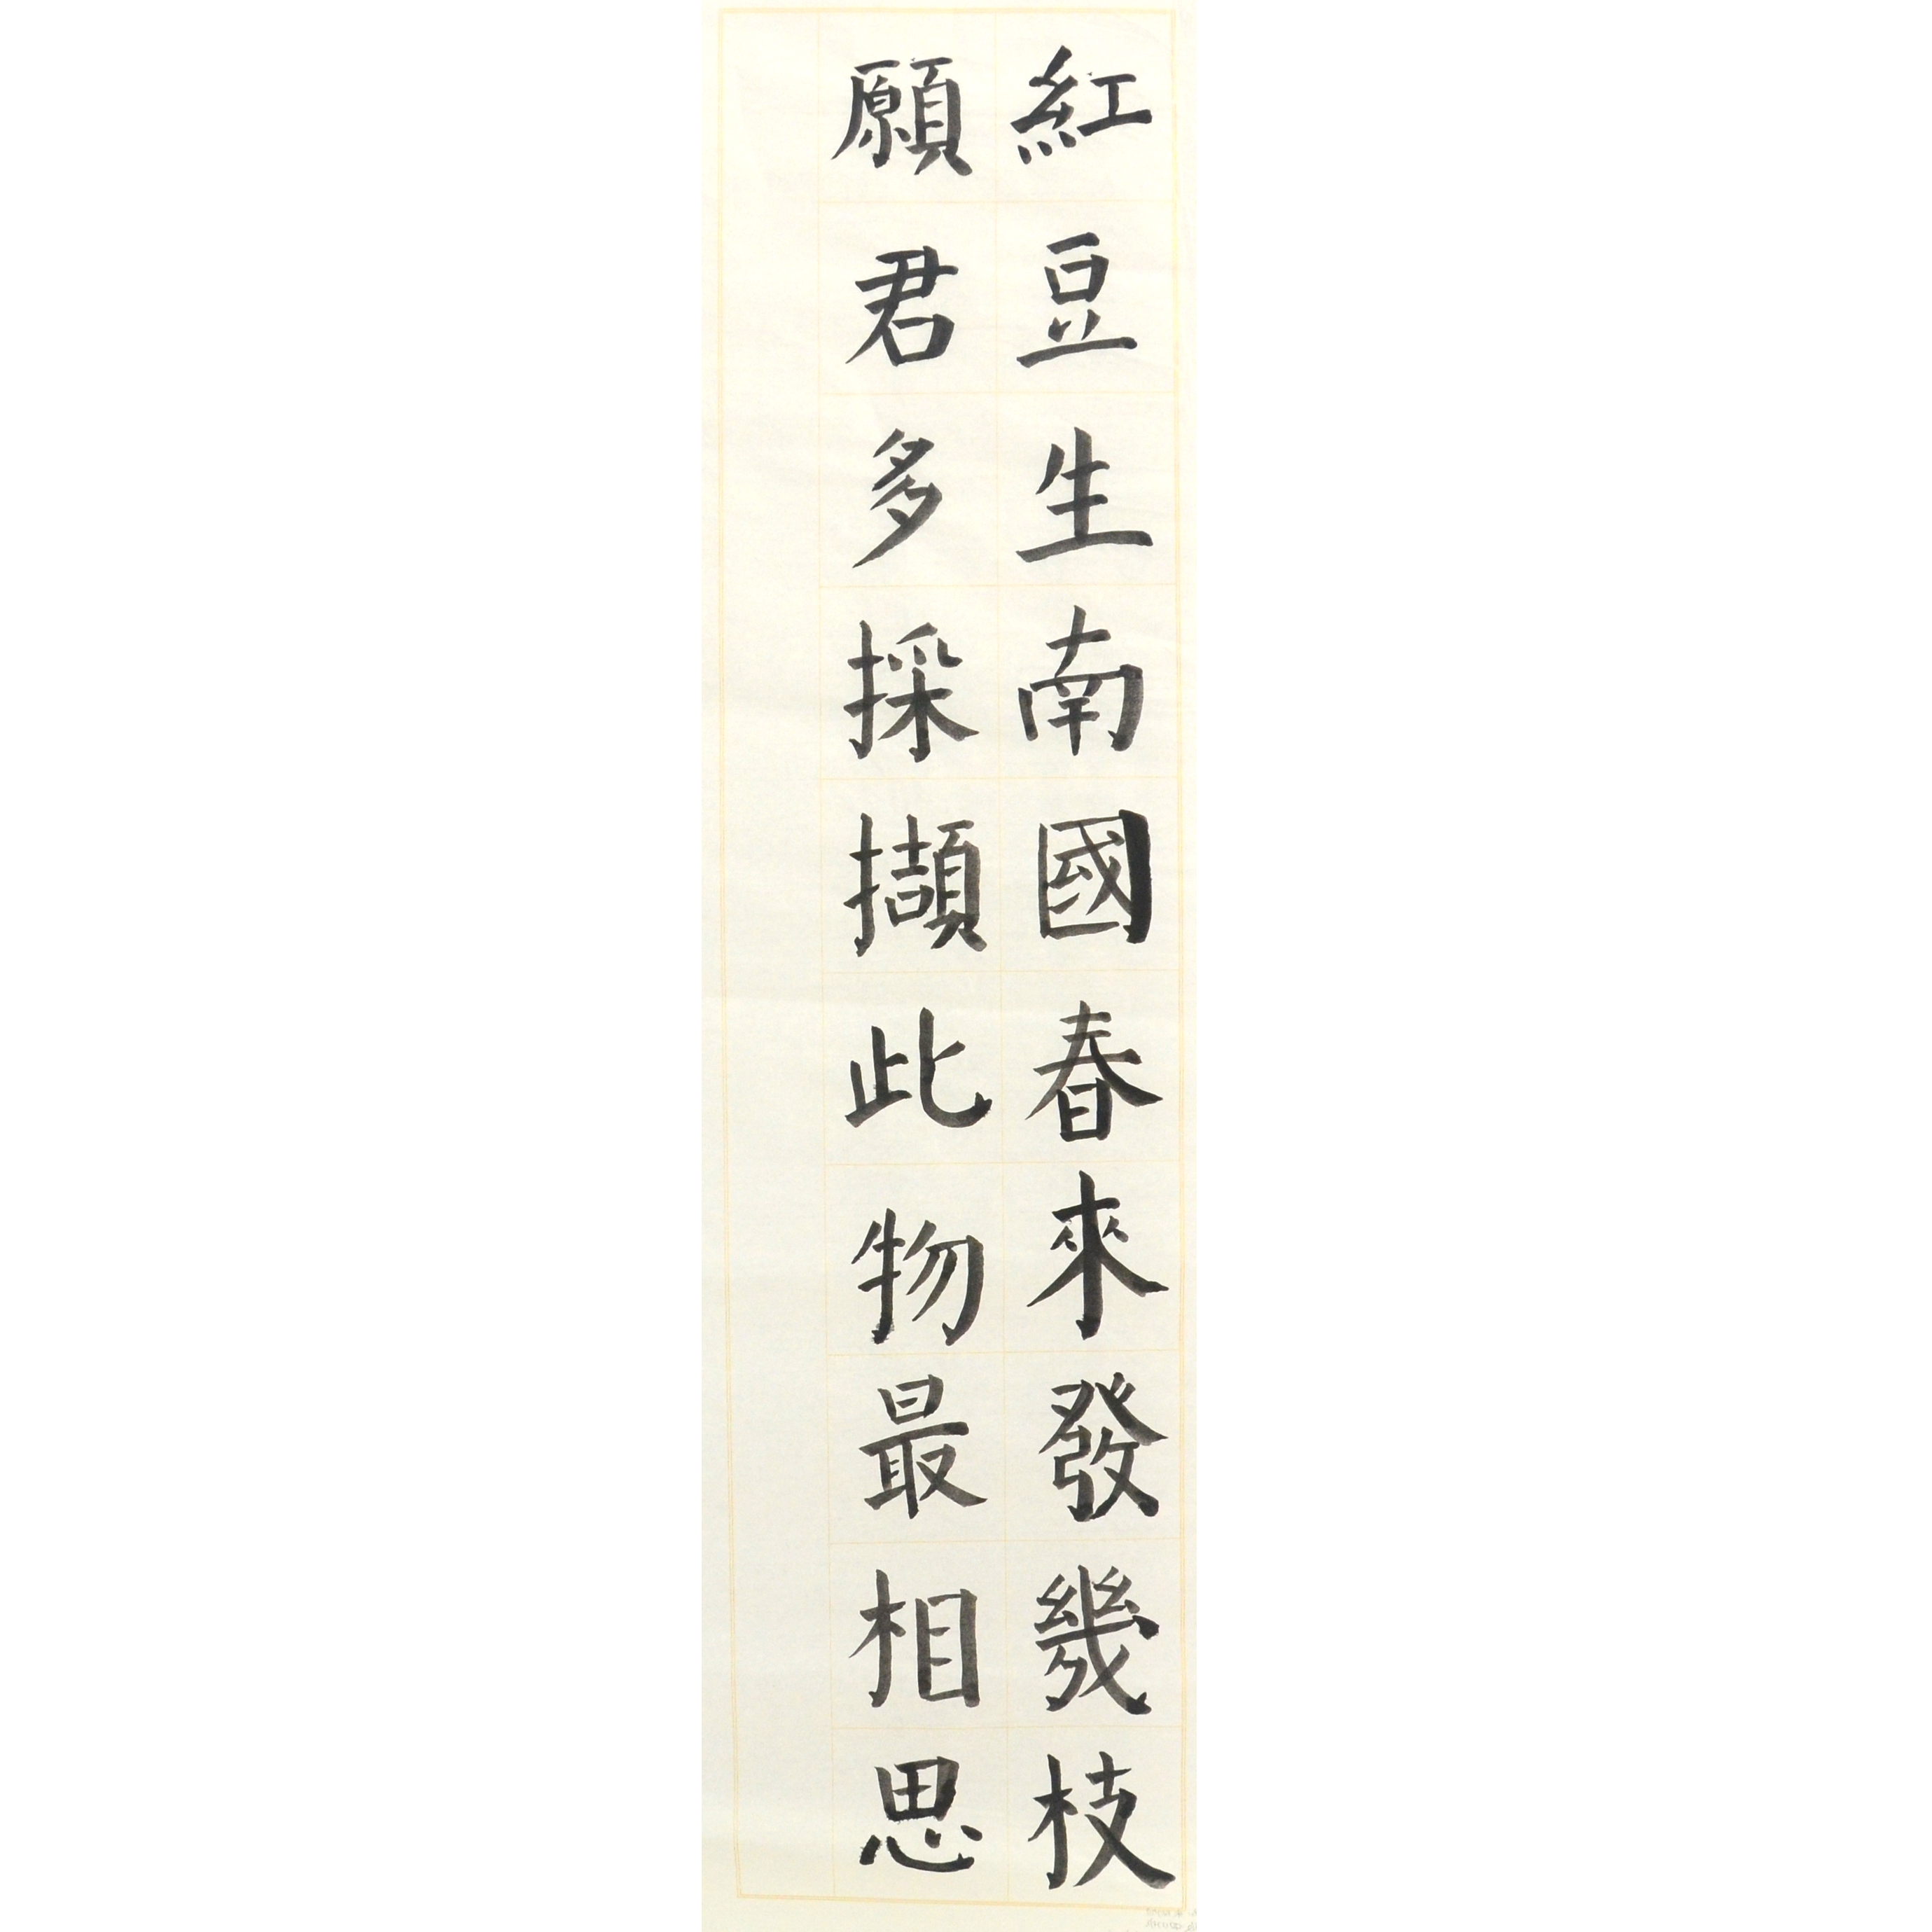 紅豆生南國春來發幾枝
願君多採擷此物最相思